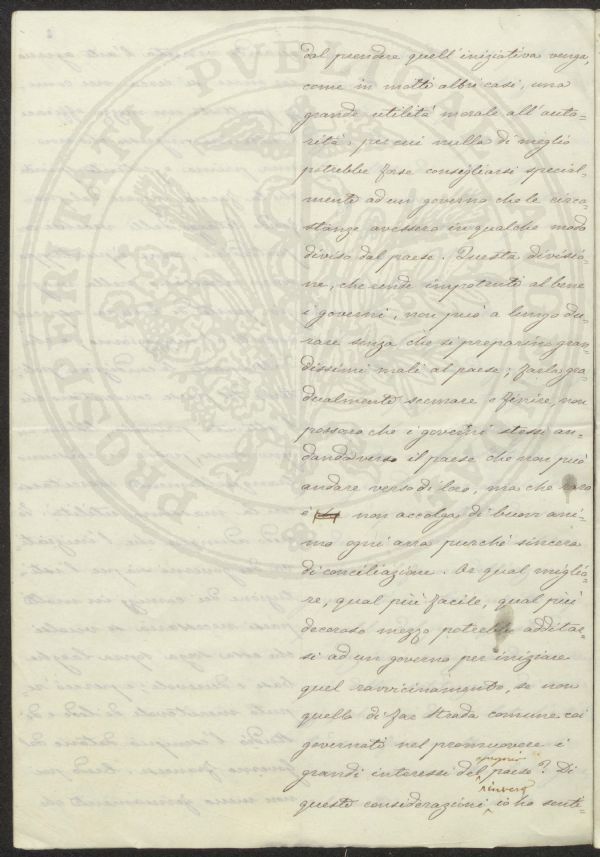 dal prendere quell'iniziativa venga,
come in molti altri casi, una
grande utilità morale all'auto-
rità, per cui nulla di meglio
potrebbe forse consigliarsi special-
mente ad un governo che le circo-
stanze avessero in qualche modo
diviso dal paese. Questa divisio-
ne, che rende impotenti al bene
i governi, non può a lungo du-
rare senza che si preparino gran-
dissimi mali al paese; farla gra-
dualmente scemare e finire, non
possono che i governi stessi an-
dando verso il paese che non può
andare verso di loro, ma che raro
è non accolga di buon ani-
mo ogni arra purchè sincera
di conciliazione. Or qual miglio-
re, qual più facile, qual più
decoroso mezzo potrebbe additar-
si ad un governo per iniziare
quel ravvicinamento, se non
quello di far strada comune coi
governati nel promuovere i
grandi interessi del proprio paese? Di
queste considerazioni io ho senti-
PROSPERITATI PVBLICAE